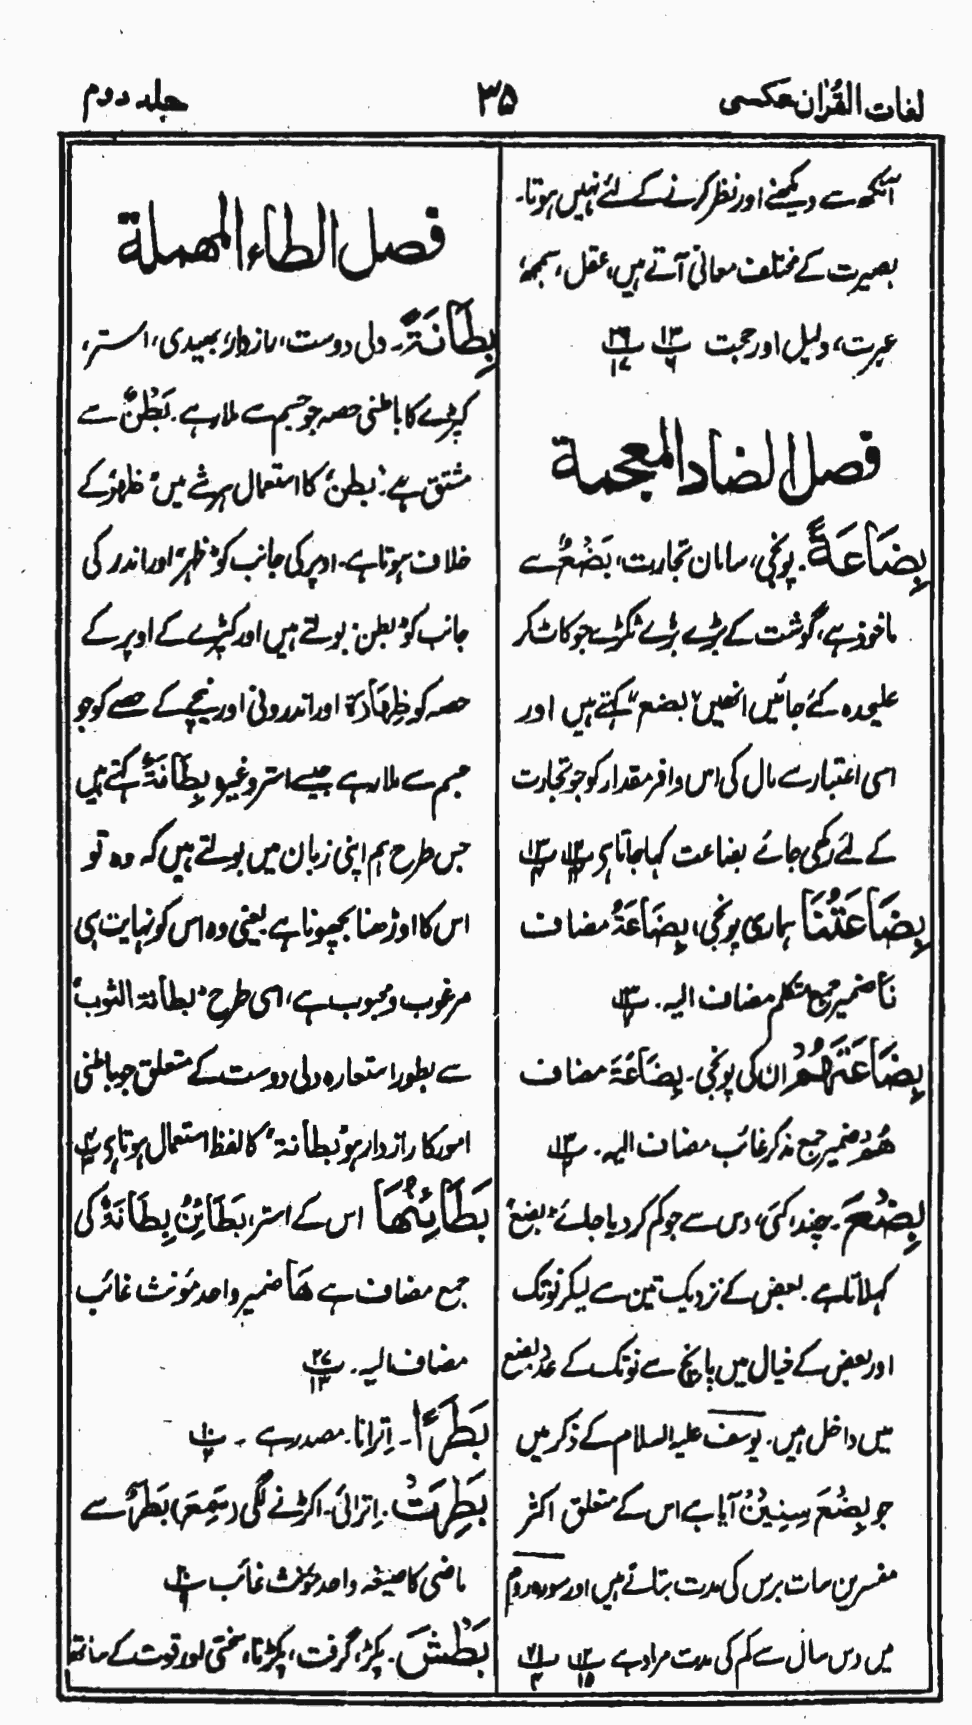 لغات القرآن عکسی
۳۵
جلد دوم
آنکھ سے دیکھنے اور نظر کرنے کے لئے نہیں ہوتا۔
بصیرت کے مختلف معانی آتے ہیں، عقل، سمجھ،
عبرت، دلیل اور حجت پ۱۳/۶ پ۲۹/۱۷
فصل الضاد المعجمة
بِضَاعَةً۔ پونجی، سامان تجارت، بَضْعٌ سے
ماخوذ ہے، گوشت کے بڑے بڑے ٹکڑے جو کاٹ کر
علیحدہ کئے جائیں انھیں "بضع" کہتے ہیں اور
اسی اعتبار سے مال کی اس وافر مقدار کو جو تجارت
کے لئے رکھی جائے بضاعت کہا جاتا ہے
بِضَاعَتُنَا ہماری پونجی، بِضَاعَةُ مضاف
نَا ضمیر جمع متکلم مضاف الیہ۔
بِضَاعَتَهُمْ ان کی پونجی۔ بِضَاعَةَ مضاف
هُمْ ضمیر جمع مذکر غائب مضاف الیہ۔
بِضْعَ۔ چند، کئی، دس سے جو کم کر دیا جائے "بضع"
کہلاتا ہے۔ بعض کے نزدیک تین سے لیکر نو تک
اور بعض کے خیال میں پانچ سے نو تک کے عدد بضع
میں داخل ہیں۔ یوسف علیہ السلام کے ذکر میں
جو بِضْعَ سِنِيْنَ آیا ہے اس کے متعلق اکثر
مفسرین سات برس کی مدت بتاتے ہیں اور سورہ روم
میں دس سال سے کم کی مدت مراد ہے پ۱۲/۱۵ پ۲۱/۴
فصل الطاء المهملة
بِطَانَةً۔ دلی دوست، رازدار، بھیدی، استر،
کپڑے کا باطنی حصہ جو جسم سے ملا رہے۔ بَطْنٌ سے
مشتق ہے۔ "بطن" کا استعمال ہر شے میں "ظہر" کے
خلاف ہوتا ہے۔ اوپر کی جانب کو "ظہر" اور اندر کی
جانب کو "بطن" بولتے ہیں اور کپڑے کے اوپر کے
حصہ کو ظِهَارَة اور اندرونی اور نیچے کے حصے کو جو
جسم سے ملا رہے جیسے استر وغیرہ بِطَانَةٌ کہتے ہیں
جس طرح ہم اپنی زبان میں بولتے ہیں کہ وہ تو
اس کا اوڑھنا بچھونا ہے یعنی وہ اس کو نہایت ہی
مرغوب و محبوب ہے، اسی طرح "بطانۃ الثوب"
سے بطور استعارہ دلی دوست کے متعلق جو باطنی
امور کا رازدار ہو "بطانۃ" کا لفظ استعمال ہوتا ہے
بَطَائِنُهَا اس کے استر، بَطَائِنُ بِطَانَةٌ کی
جمع مضاف ہے هَا ضمیر واحد مؤنث غائب
مضاف الیہ۔ پ۲۷/۱۳
بَطَرًا۔ اِترانا۔ مصدر ہے۔
بَطِرَتْ۔ اِترائی۔ اکڑنے لگی (سَمِعَ) بَطَرًا سے
ماضی کا صیغہ واحد مؤنث غائب
بَطْشَ۔ پکڑ، گرفت، پکڑنا، سختی اور قوت کے ساتھ